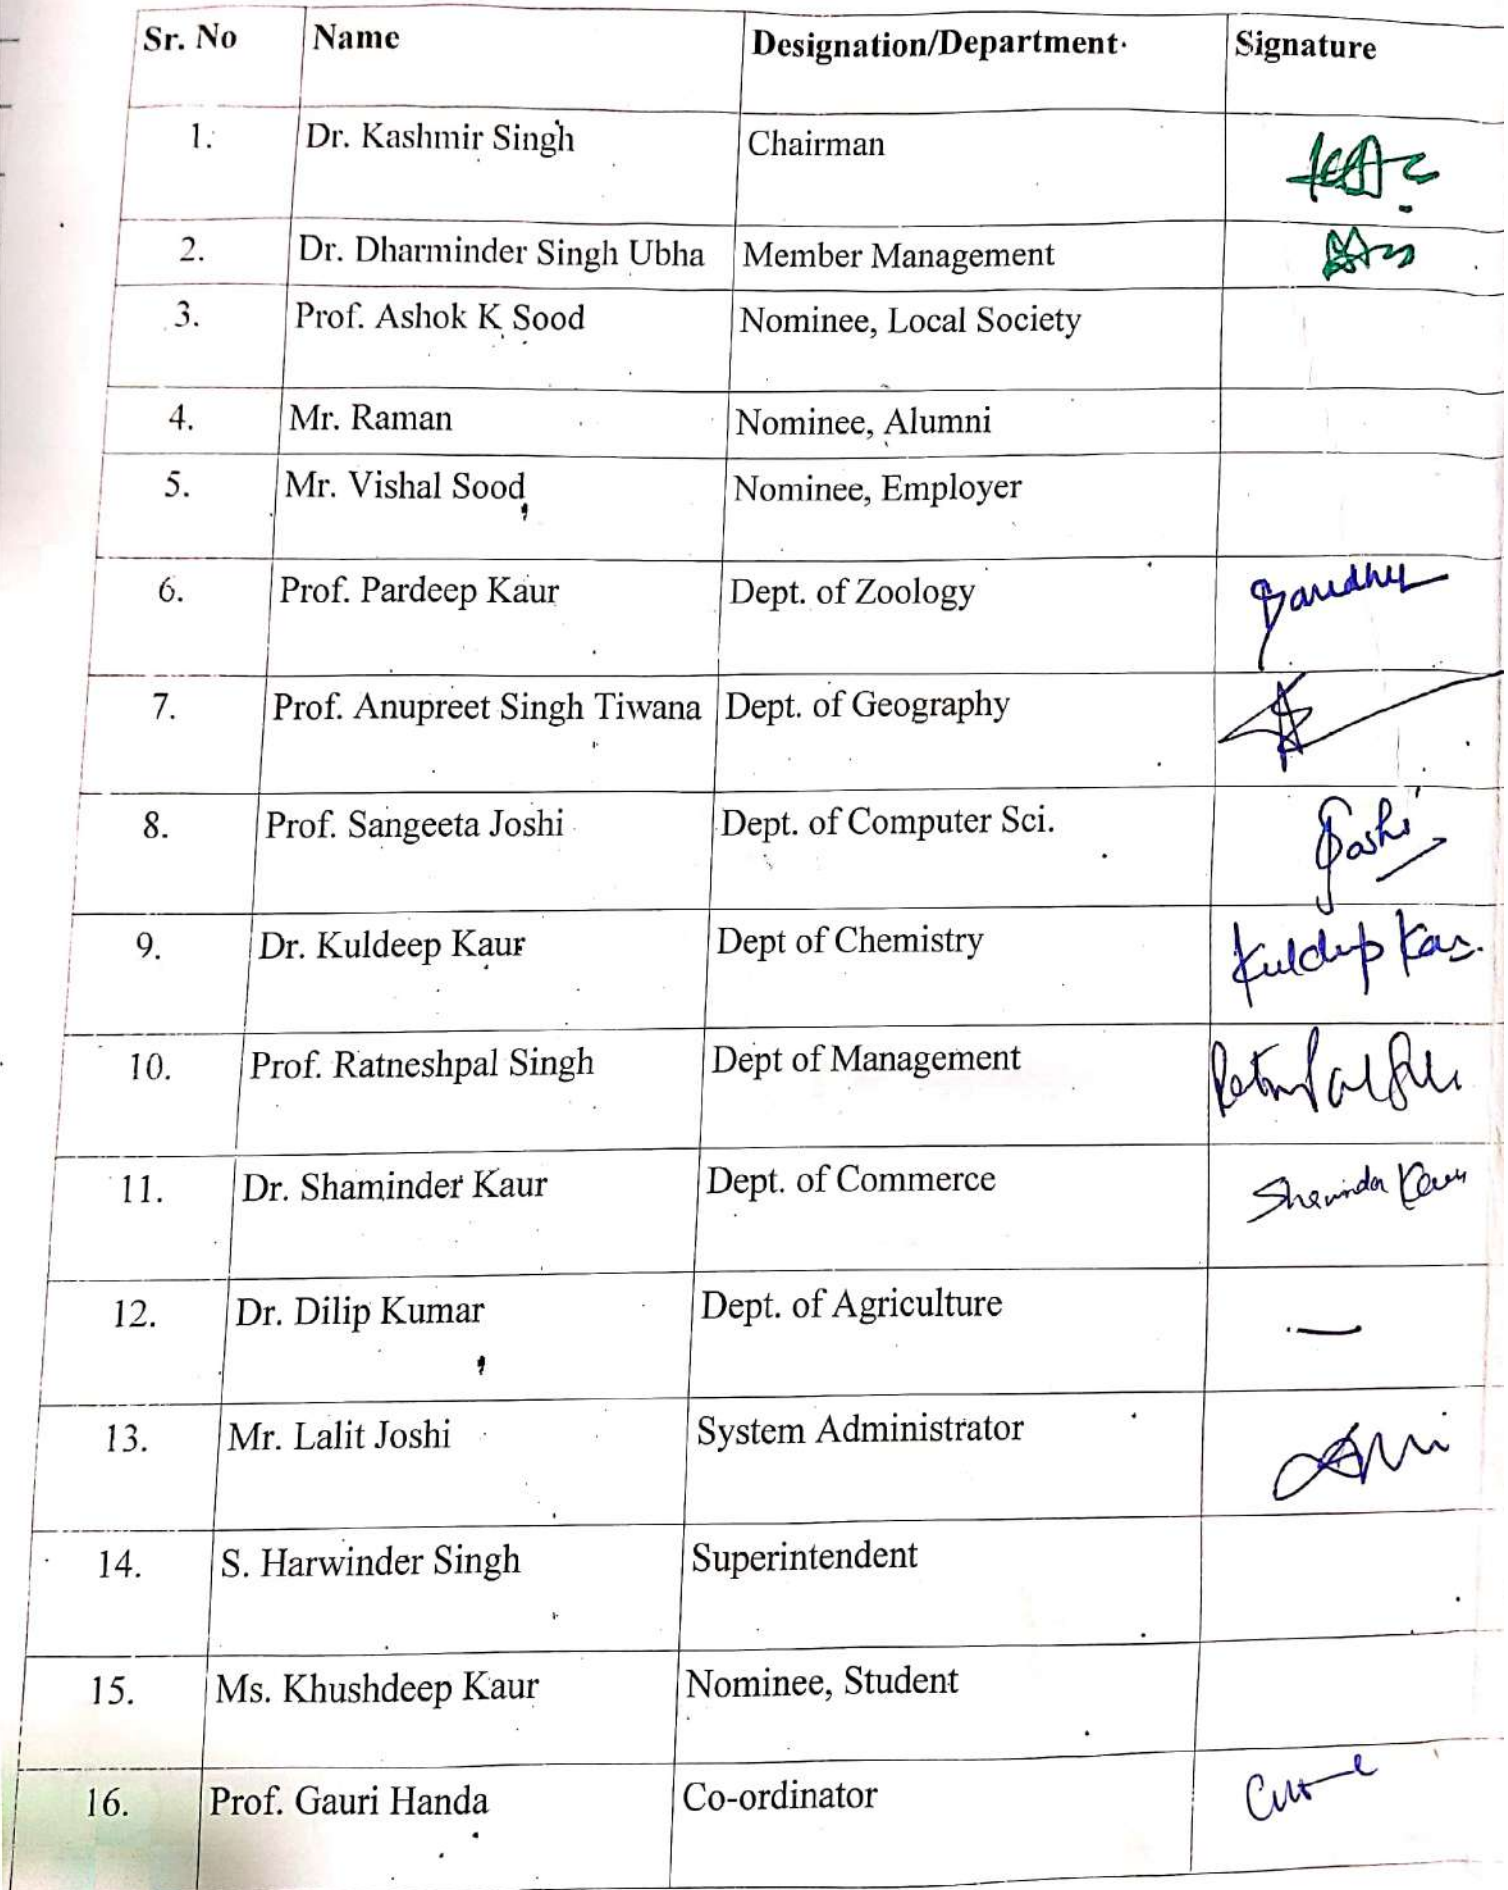 Sr. No Name Designation/Department Signature
1. Dr. Kashmir Singh Chairman
2. Dr. Dharminder Singh Ubha Member Management
3. Prof. Ashok K Sood Nominee, Local Society
4. Mr. Raman Nominee, Alumni
5. Mr. Vishal Sood Nominee, Employer
6. Prof. Pardeep Kaur Dept. of Zoology
7. Prof. Anupreet Singh Tiwana Dept. of Geography
8. Prof. Sangeeta Joshi Dept. of Computer Sci. Joshi
9. Dr. Kuldeep Kaur Dept of Chemistry Kuldeep Kaur
10. Prof. Ratneshpal Singh Dept of Management
11. Dr. Shaminder Kaur Dept. of Commerce Shaminder Kaur
12. Dr. Dilip Kumar Dept. of Agriculture —
13. Mr. Lalit Joshi System Administrator
14. S. Harwinder Singh Superintendent
15. Ms. Khushdeep Kaur Nominee, Student
16. Prof. Gauri Handa Co-ordinator